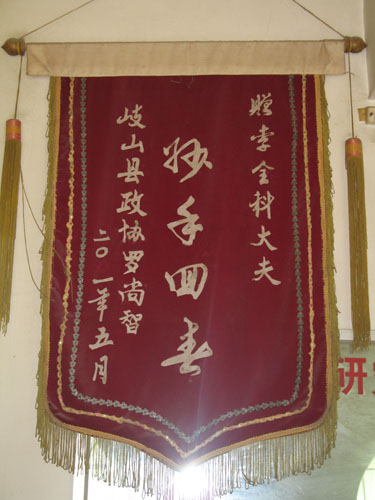 赠李全科大夫
妙手回春
岐山县政协罗尚智
二〇一一年五月
研